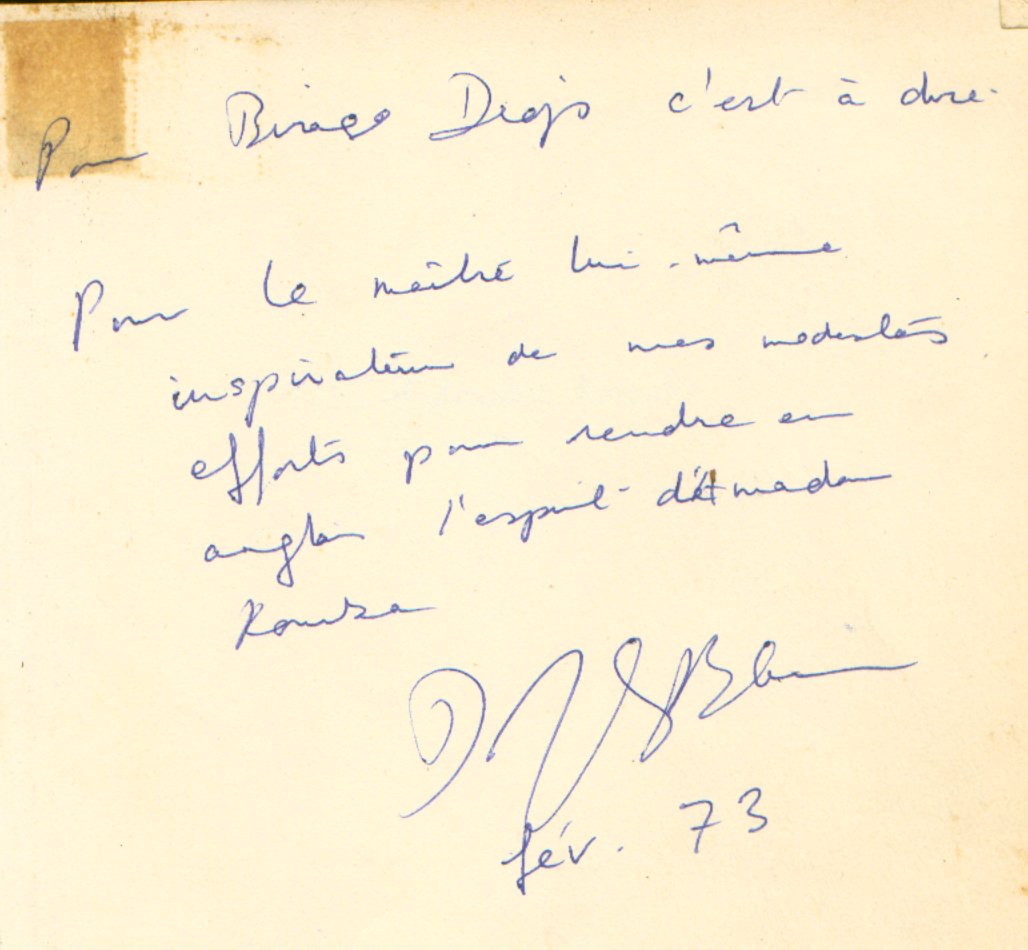 Pour Birago Diop c'est à dire
Pour le maître lui-même
inspirateur de mes modestes
efforts pour rendre en
anglais l'esprit d'Amadou
Koumba
fév. 73